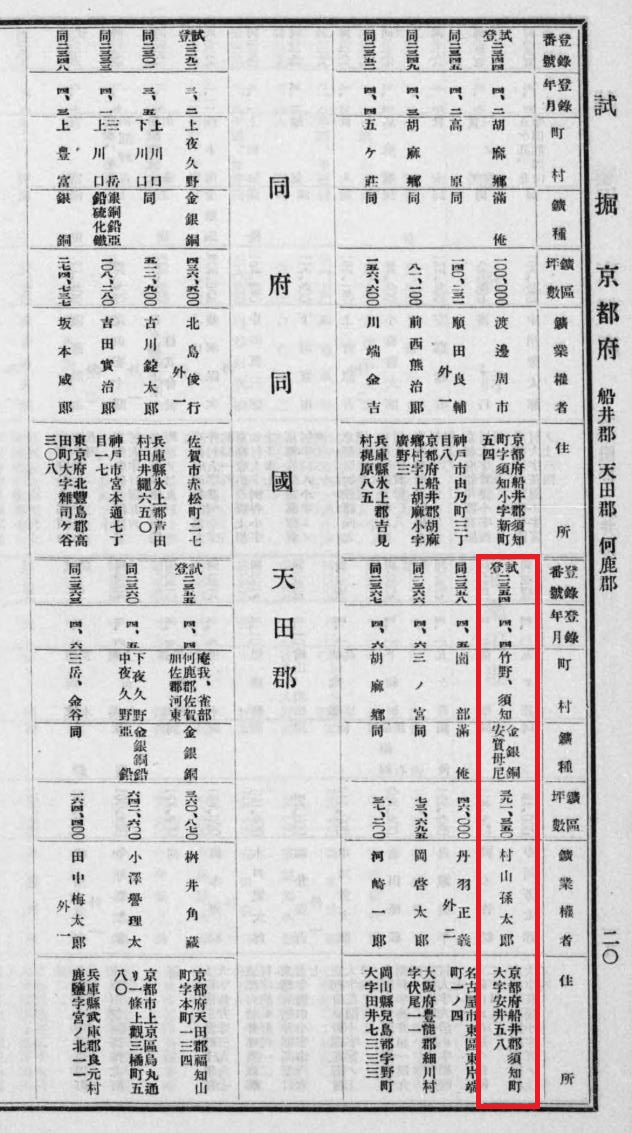 試掘 京都府 船井郡 天田郡 何鹿郡 二〇
登錄番號 登錄年月 町村 鑛種 鑛區坪數 鑛業權者 住所
試登二三四四 四、二 胡麻鄕 滿俺 一〇〇、〇〇〇 渡邊周市 京都府船井郡須知町字須知小字新町五四
同二三四五 四、二 高原 同 順田良輔 外一 神戶市由乃町三丁目八
同二三四九 四、三 胡麻鄕 同 八一、一〇〇 前西熊治郞 京都府船井郡胡麻鄕村字上胡麻小字廣野三
同二三五二 四、四 五ケ莊 同 一五六、六〇〇 川端金吉 兵庫縣氷上郡吉見村梶原八五
登錄番號 登錄年月 町村 鑛種 鑛區坪數 鑛業權者 住所
試登二三五四 四、四 竹野、須知 金銀銅安質母尼 三九一、三五〇 村山孫太郞 京都府船井郡須知町大字安井五八
同二三五八 四、五 園部 滿俺 四六、〇〇〇 丹羽正義 外二 名古屋市東區東片端町一ノ四
同二三六六 四、六 三ノ宮 同 七三、六九五 岡啓太郞 大阪府豊能郡細川村字伏尾一一
同二三六七 四、六 胡麻鄕 同 三七、二〇〇 河崎一郞 岡山縣兒島郡宇野町大字田井七三三三
同府同國天田郡
試登二二九二 三、二 上夜久野 金銀銅 四三六、五〇〇 北島俊行 外一 佐賀市赤松町二七
同二三〇二 三、五 上川口下川口 同 五一二、九〇〇 古川錠太郞 兵庫縣氷上郡芦田村田井繩六五〇
同二三三三 四、一 三岳上川口 銀銅鉛亞鉛硫化鐵 一〇八、二八〇 吉田實治郞 神戶市宮本通七丁目一七
同二三四八 四、三 上豊富 銀銅 二七四、七三七 坂本威郞 東京府北豊島郡高田町大字雜司ケ谷三〇八
試登二三五五 四、四 庵我、雀部何鹿郡佐賀加佐郡河東 金銀銅 三六〇、八七〇 桝井角藏 京都府天田郡福知山町字本町一三四
同二三六〇 四、五 下夜久野中夜久野 金銀銅鉛亞鉛 六四二、六〇〇 小澤譽理太 京都市上京區烏丸通リ一條上觀三橘町五八〇
同二三六三 四、六 三岳、金谷 同 一六四、四〇〇 田中梅太郞 外一 兵庫縣武庫郡良元村鹿鹽字宮ノ北一一